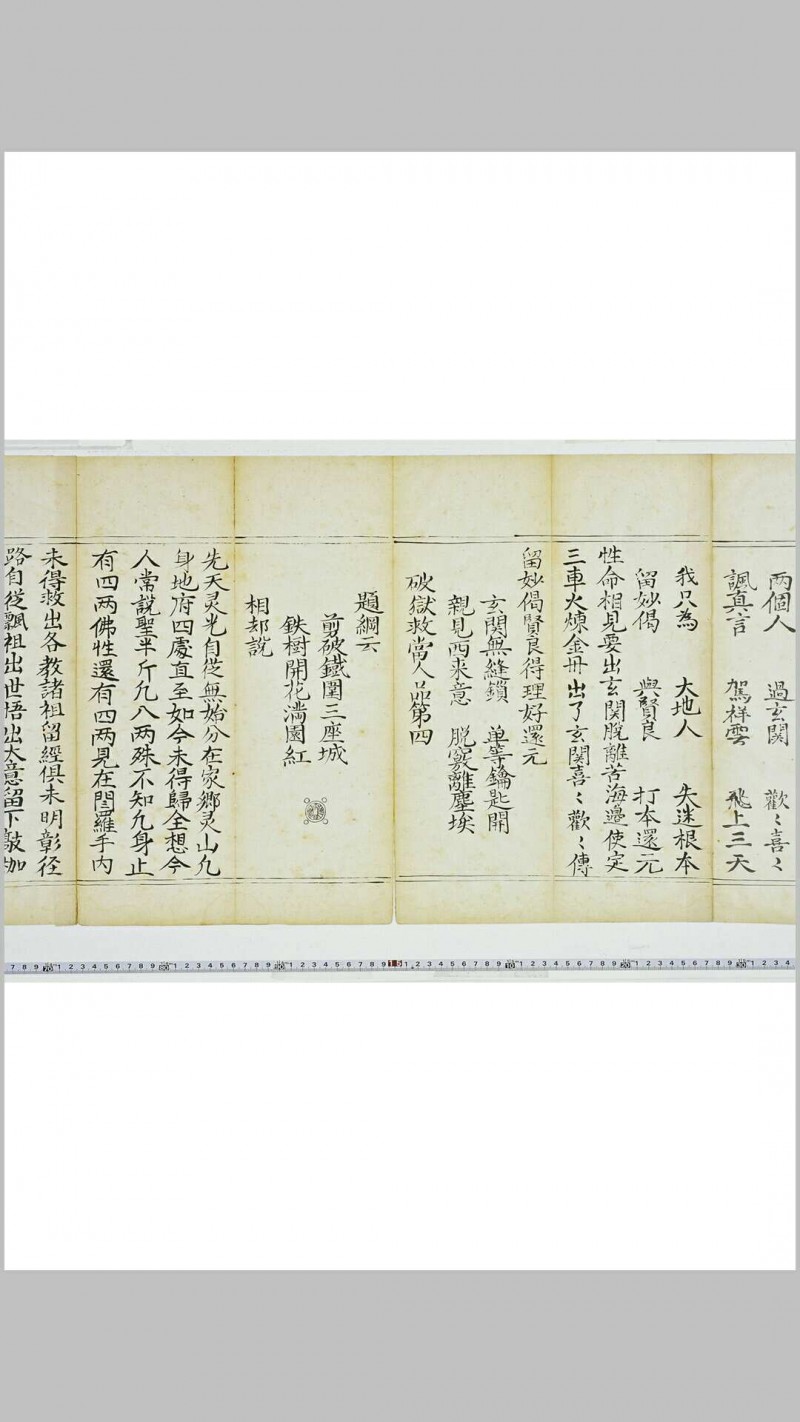 两個人 過玄関 歡〻喜〻
諷真言 駕祥雲 飛上三天
我只為 大地人 失迷根本
留妙偈 與賢良 打本還元
性命相見要出玄関脫離苦海邊使定
三車火煉金丹出了玄関喜〻歡〻傳
留妙偈賢良得理好還元
玄関無縫鎖 单等鑰匙開
親見西来意 脫竅離塵埃
破獄救當人品第四
題綱云
剪破鐵圍三座城
鉄樹開花满園紅
相却說
先天灵光自從無始分在家鄉灵山凢
身地府四處直至如今未得歸全想今
人常說聖半斤凢八两殊不知凢身止
有四两佛性還有四两見在閻羅手内
未得救出各教諸祖留經俱未明彰径
路自從飄祖出世悟出大意留下敲